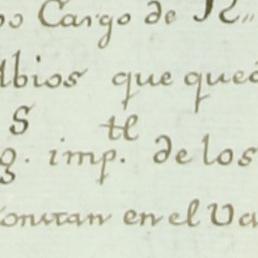 po Cargo de
lbios que que
S tl
g. imp. de los
Constan en el Va